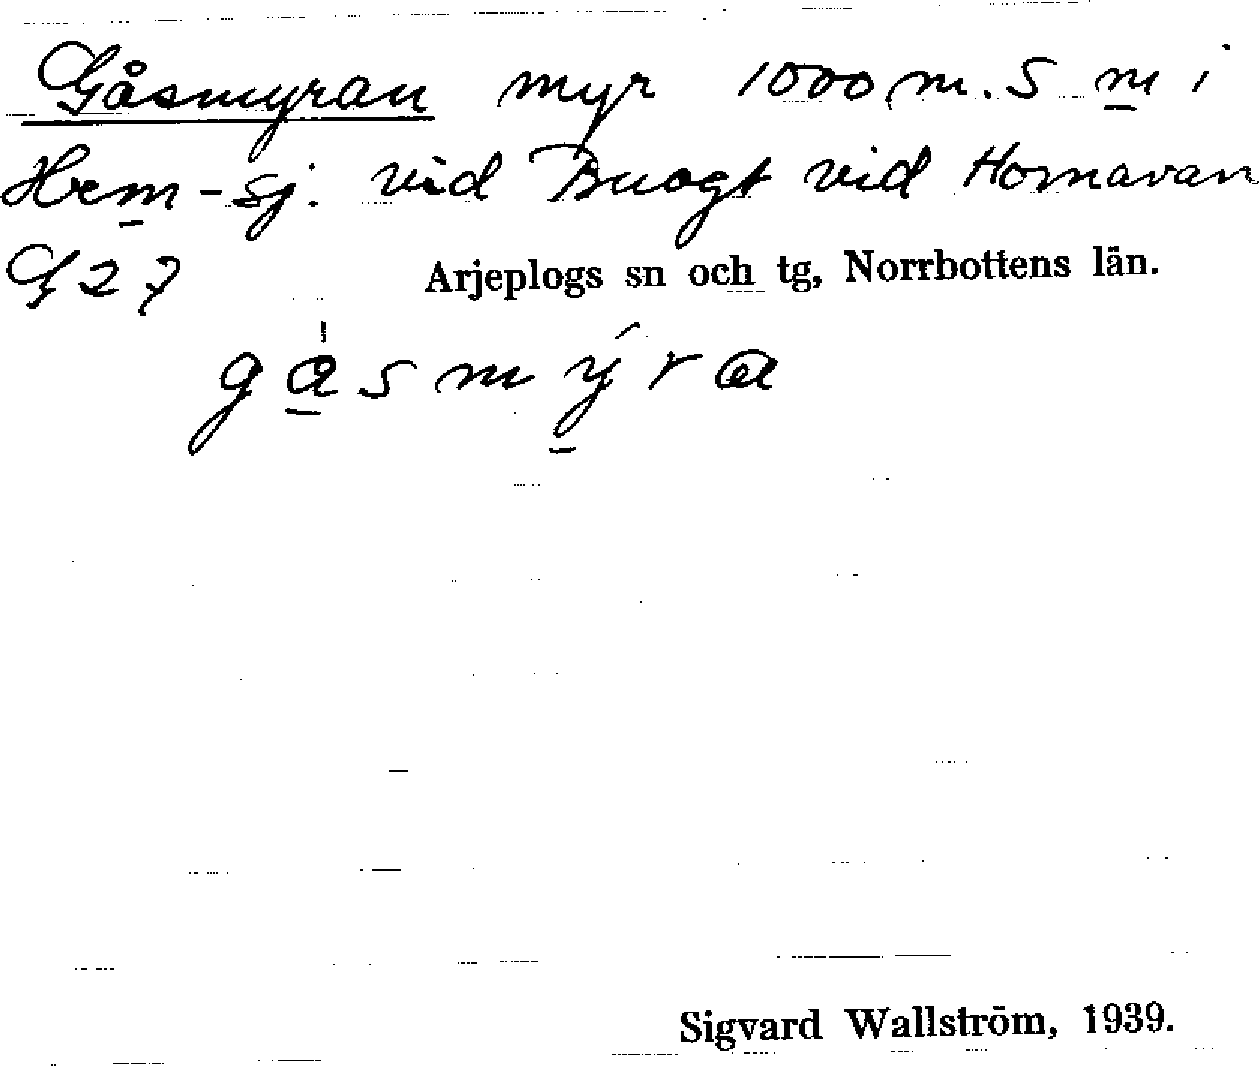 Gåsmyran myr 1000 m. S m i
Hem-sj. vid Buogt vid Hornavan
G 2 7 Arjeplogs sn och tg, Norrbottens län.
gåsmýra
Sigvard Wallström, 1939.